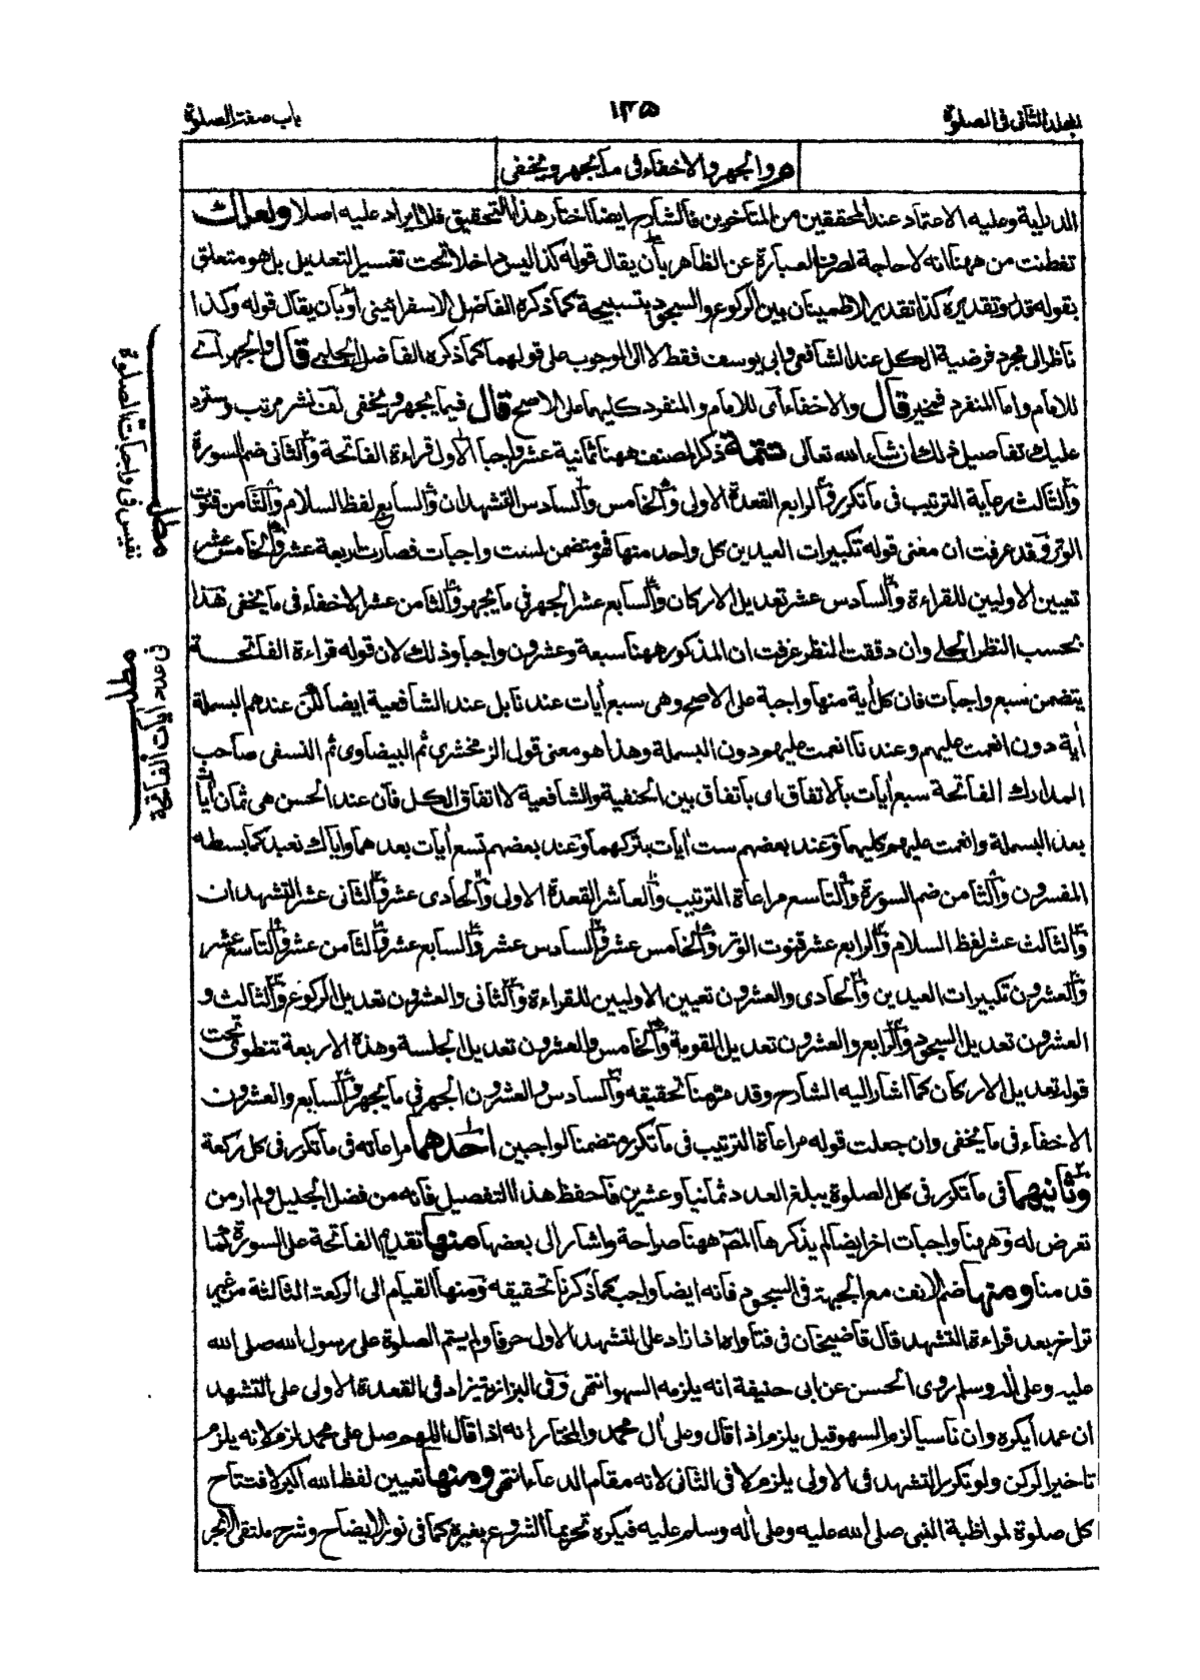 المجلد الثانى فى الصلوة
١٣٥
باب صفة الصلوة
هر والجهر والاخفاء فى ما يجهر ويخفى
الدراية وعليه الاعتماد عند المحققين من المتأخرين فالشارح ايضا اختار هذا التحقيق فلا ايراد عليه اصلا ولعلك
تفطنت من ههنا انه لا حاجة لصرف العبارة عن الظاهر بأن يقال قوله كذا ليس داخلا تحت تفسير التعديل بل هو متعلق
بقوله قدر وتقديره كذا تقدير الاطمينان بين الركوع والسجود بتسبيحة كما ذكره الفاضل الاسفرائينى أو بأن يقال قوله وكذا
ناظر الى مجرد فرضية الكل عند الشافعى وابى يوسف فقط لا الى الوجوب على قولهما كما ذكره الفاضل الچلپى قال والجهر اے
للامام واما المنفرد فمخير قال والاخفاء أى للامام والمنفرد كليهما على الاصح قال فيما يجهر ويخفى لف نشر مرتب وسترد
عليك تفاصيل ذلك ان شاء الله تعالى تتمة ذكر المصنف ههنا ثمانية عشر واجبا الاول قراءة الفاتحة والثانى ضم السورة
والثالث رعاية الترتيب فى ما تكرر والرابع القعدة الاولى والخامس والسادس التشهدان والسابع لفظ السلام والثامن قنوت
الوتر وقد عرفت ان معنى قوله تكبيرات العيدين كل واحد منها فهو متضمن لست واجبات فصارت اربعة عشر والخامس عشر
تعيين الاوليين للقراءة والسادس عشر تعديل الاركان والسابع عشر الجهر فى ما يجهر والثامن عشر الاخفاء فى ما يخفى هذا
بحسب النظر الجلى وان دققت النظر عرفت ان المذكور ههنا سبعة وعشرون واجبا وذلك لان قوله قراءة الفاتحة
يتضمن سبع واجبات فان كل أية منها واجبة على الاصح وهى سبع أيات عندنا بل عند الشافعية ايضا لكن عندهم البسملة
أية دون انعمت عليهم وعندنا انعمت عليهم دون البسملة وهذا هو معنى قول الزمخشرى ثم البيضاوى ثم النسفى صاحب
المدارك الفاتحة سبع أيات بالاتفاق اى باتفاق بين الحنفية والشافعية لا اتفاق الكل فان عند الحسن هى ثمان أيات
بعد البسملة وانعمت عليهم كليهما وعند بعضهم ست أيات بتركهما وعند بعضهم تسع أيات بعدهما واياك نعبد كما بسطه
المفسرون والثامن ضم السورة والتاسع مراعاة الترتيب والعاشر القعدة الاولى والحادى عشر والثانى عشر التشهدان
والثالث عشر لفظ السلام والرابع عشر قنوت الوتر والخامس عشر والسادس عشر والسابع عشر والثامن عشر والتاسع عشر
والعشرون تكبيرات العيدين والحادى والعشرون تعيين الاوليين للقراءة والثانى والعشرون تعديل الركوع والثالث و
العشرون تعديل السجود والرابع والعشرون تعديل القومة والخامس والعشرون تعديل الجلسة وهذه الاربعة تنطوى تحت
قوله تعديل الاركان كما اشار اليه الشارح وقد مر منا تحقيقه والسادس والعشرون الجهر فى ما يجهر والسابع والعشرون
الاخفاء فى ما يخفى وان جعلت قوله مراعاة الترتيب فى ما تكرر متضمنا لواجبين احدهما مراعاته فى ما تكرر فى كل ركعة
وثانيهما فى ما تكرر فى كل الصلوة يبلغ العدد ثمانيا وعشرين فاحفظ هذا التفصيل فانه من فضل الجليل ولم ار من
تعرض له وههنا واجبات اخر ايضا لم يذكرها المصـ ههنا صراحة واشار الى بعضها منها تقديم الفاتحة على السورة كما
قدمنا ومنها ضم الانف مع الجبهة فى السجود فانه ايضا واجب كما ذكرنا تحقيقه ومنها القيام الى الركعة الثالثة من غير
تراخ بعد قراءة التشهد قال قاضيخان فى فتاواه اذا زاد على التشهد الاول حرفا ولم يستم الصلوة على رسول الله صلى الله
عليه وعلى اله وسلم روى الحسن عن ابى حنيفة انه يلزمه السهو انتهى وفى البزازية زاد فى القعدة الاولى على التشهد
ان عمدا يكره وان ناسيا لزم السهو قيل يلزم اذا قال وعلى أل محمد والمختار انه اذا قال اللهم صل على محمد لزم لانه يلزم
تاخير الركن ولو تكرر التشهد فى الاولى يلزم لا فى الثانى لانه مقام الدعاء انتهى ومنها تعيين لفظ الله اكبر لافتتاح
كل صلوة لمواظبة النبى صلى الله عليه وعلى أله وسلم عليه فيكره تحريما الشروع بغيره كما فى نور الايضاح وشرح ملتقى الابحر
مطلب
نفيس فى واجبات الصلوة
مطلب
فى عدد أيات الفاتحة